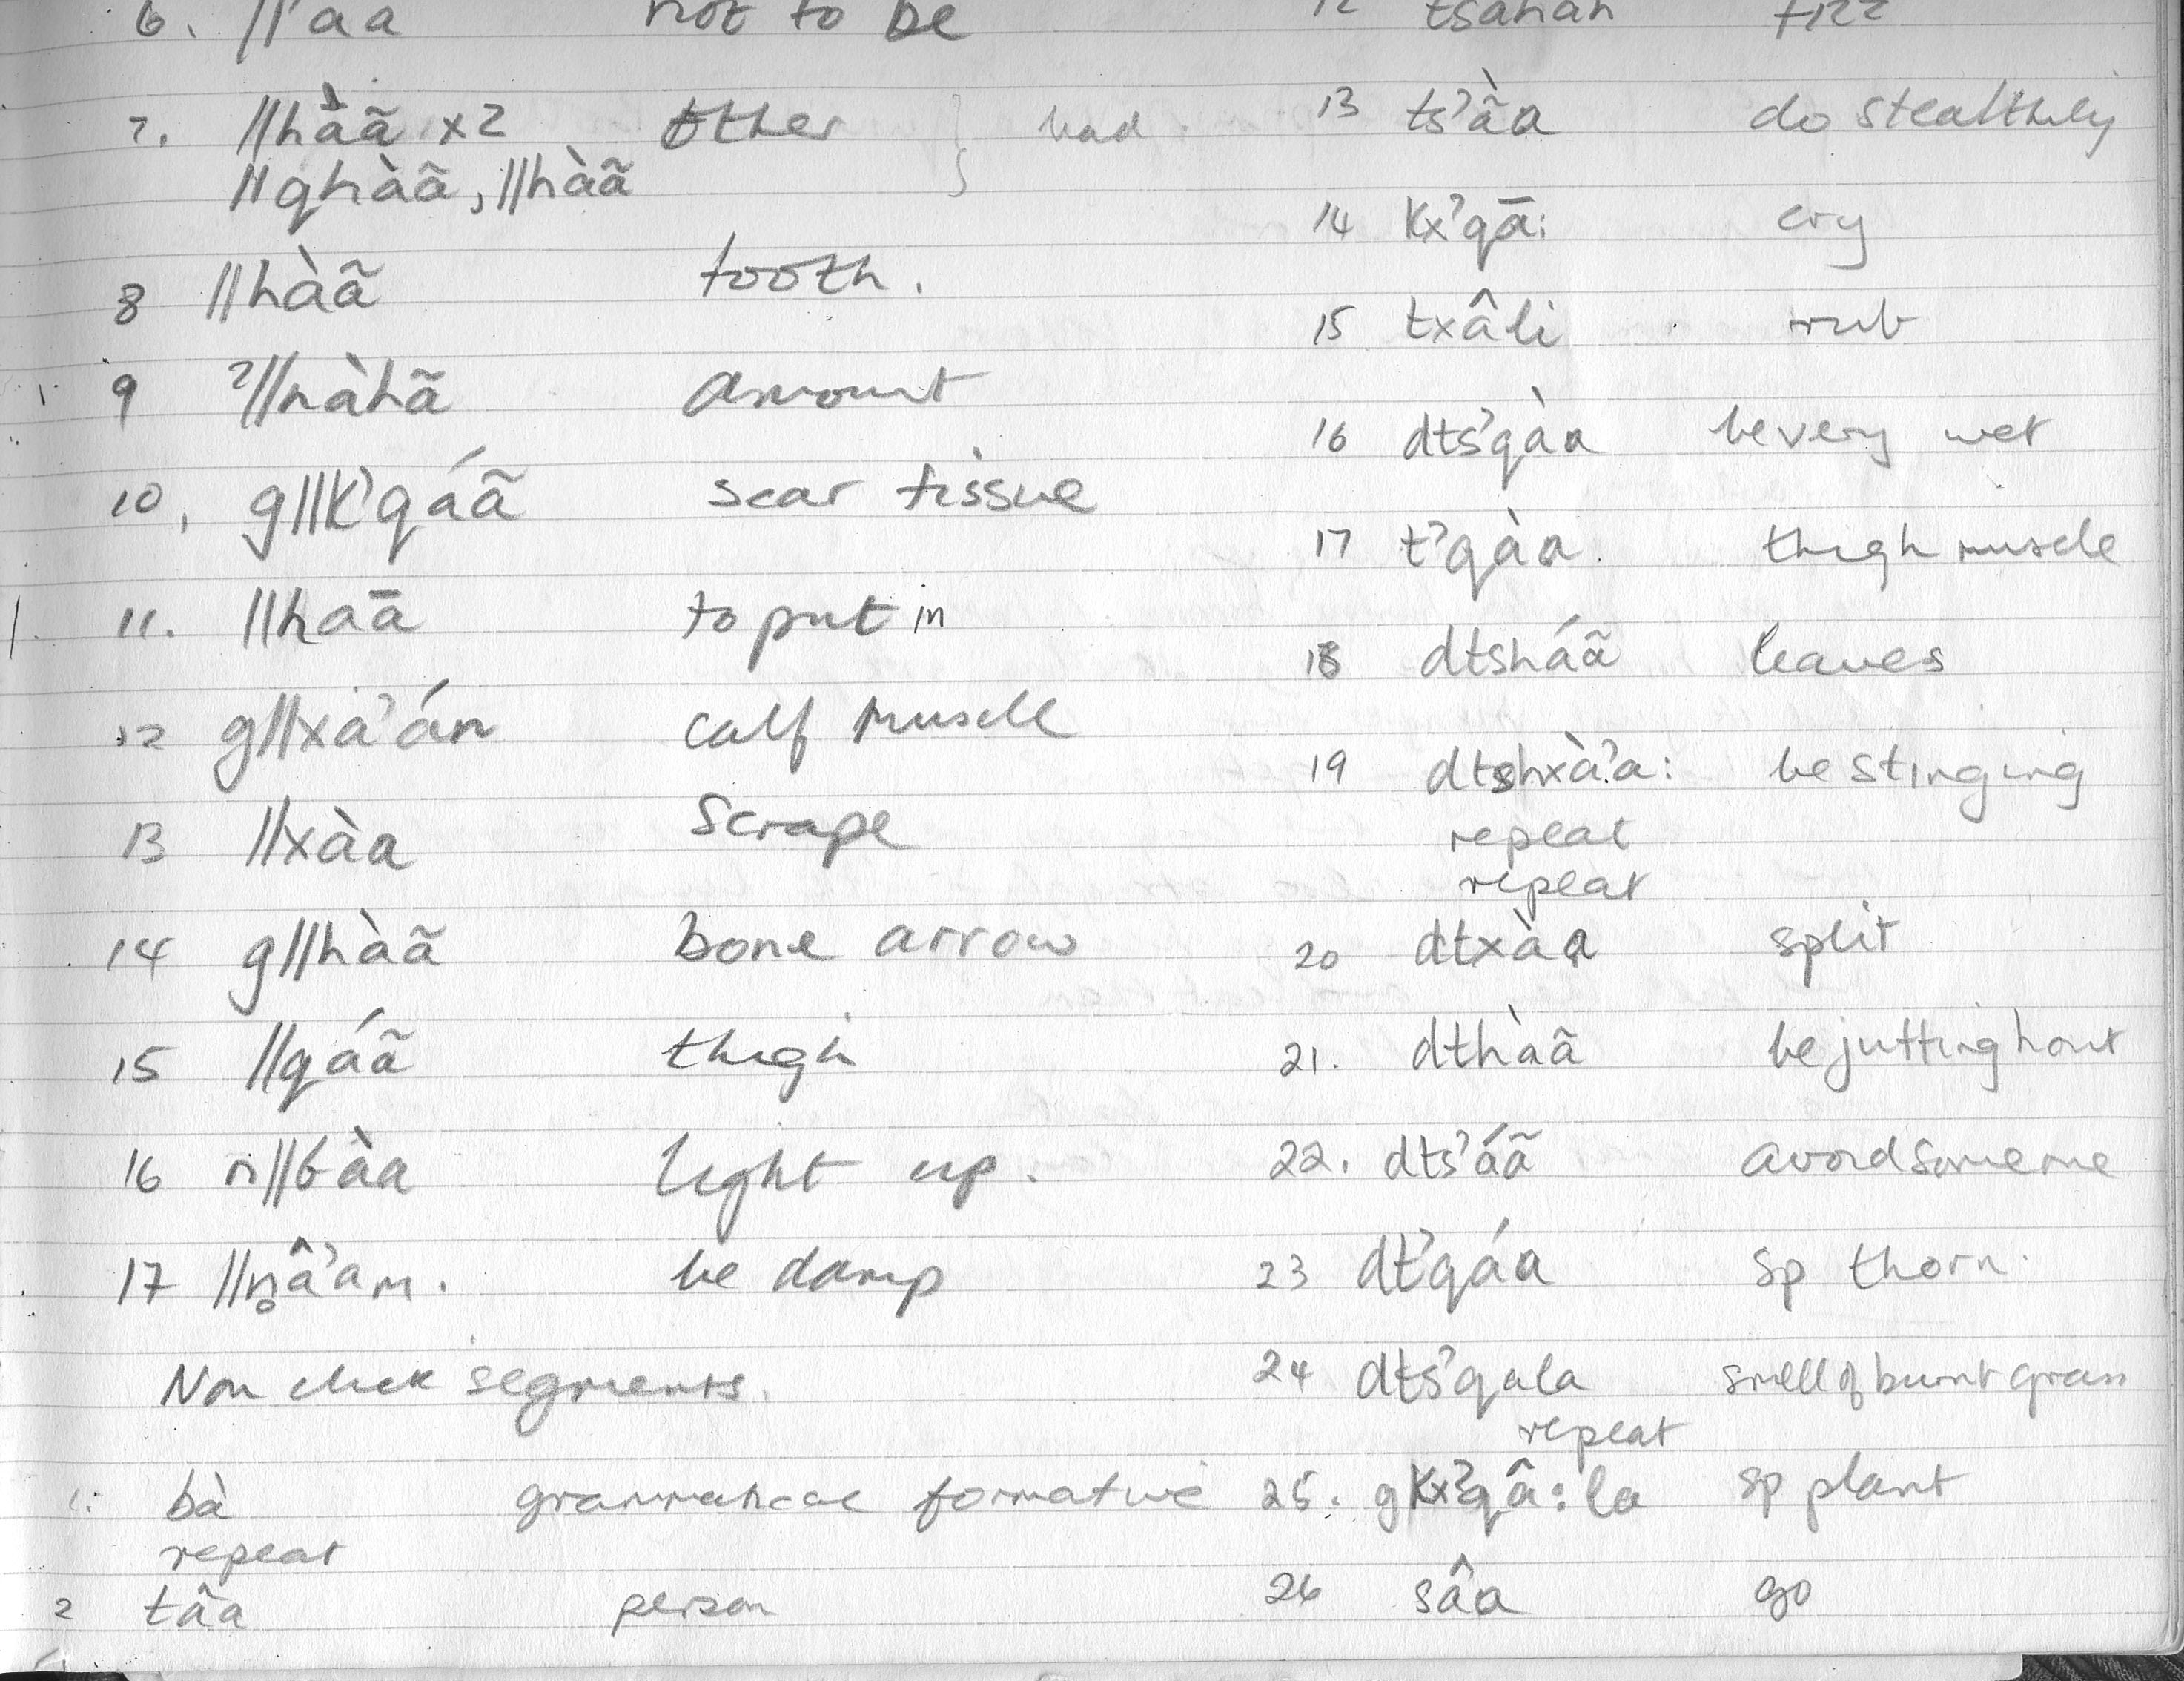 6. ||'aa not to be
7. ||hàã x2 other } bad.
||qhàã, ||hàã
8 ||hàã tooth.
9 ˀ||nàhã amount
10, g||k'qáã scar tissue
11. ||haā to put in
12 g||xa'án calf muscle
13 ||xàa Scrape
14 g||hàã bone arrow
15 ||qáã thigh
16 n||bàa light up.
17 ||n̥â'am. be damp
Non click segments.
1. bà grammatical formative
repeat
2 tâa person
12 tsahan
13 ts'ãa do stealthily
14 kx'qā: cry
15 txâli rub
16 dts'qàa be very wet
17 t'qàa. thigh muscle
18 dtsháã leaves
19 dtshxà'a: be stinging
repeat
repeat
20 dtxàa split
21. dthàã be jutting hout
22. dts'áã avoid someone
23 dt'qáa sp thorn.
24 dts'qala smell of burnt grass
repeat
25. gkx'qâ:la sp plant
26 sâa go